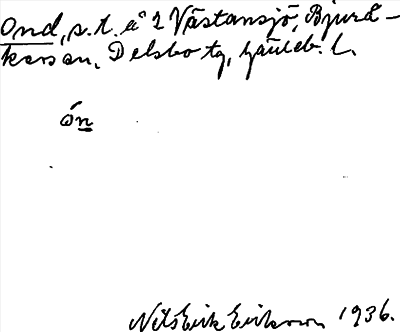 Ond, s.t. å 2 Västansjö, Bjurå-
ker sn, Delsbo tg, Gävleb. l.
ón
Nils Erik Eriksson 1936.